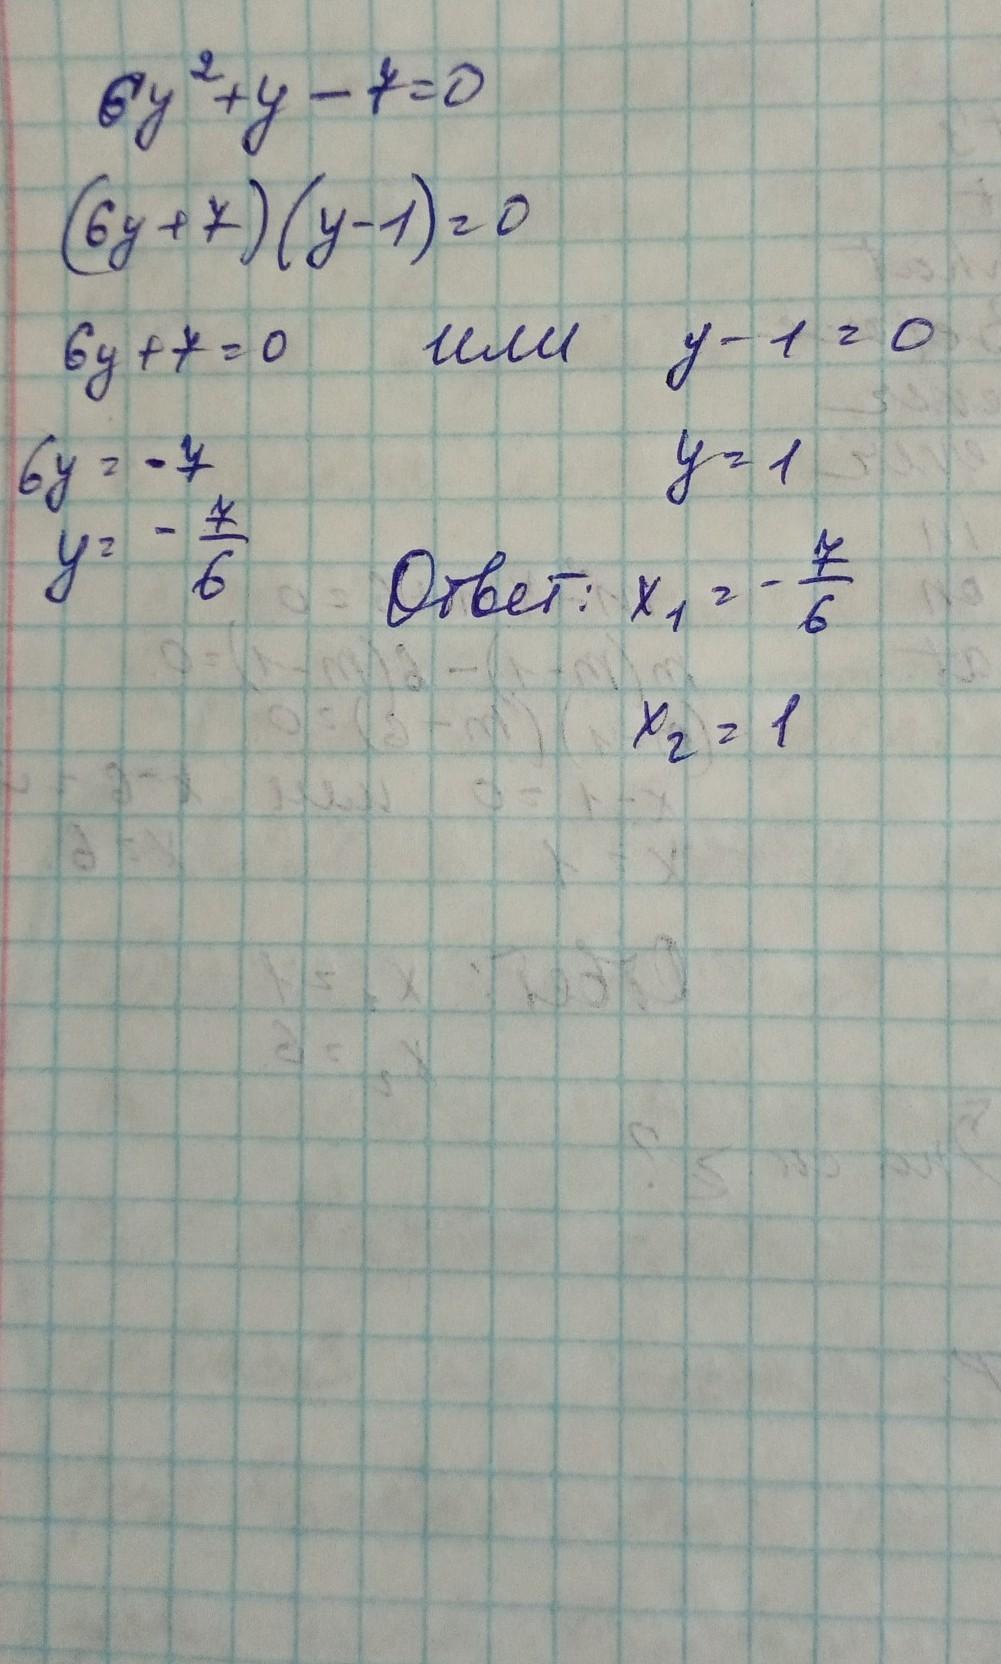 6y²+y-7=0
(6y+7)(y-1)=0
6y+7=0 или y-1=0
6y=-7 y=1
y=-7/6
Ответ: x₁=-7/6
x₂=1